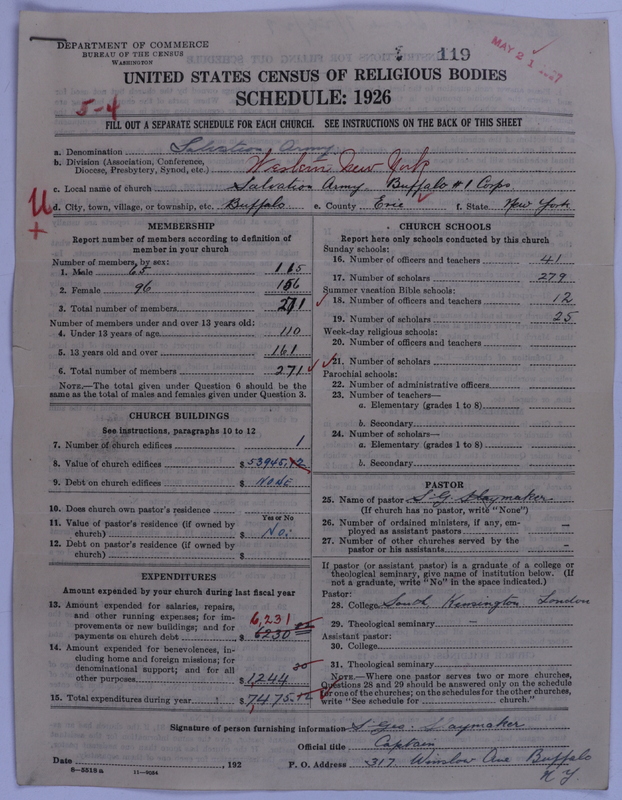 DEPARTMENT OF COMMERCE
BUREAU OF THE CENSUS
WASHINGTON
119
MAY 21 1927
UNITED STATES CENSUS OF RELIGIOUS BODIES
SCHEDULE: 1926
5-4
FILL OUT A SEPARATE SCHEDULE FOR EACH CHURCH. SEE INSTRUCTIONS ON THE BACK OF THIS SHEET
a. Denomination Salvation Army
b. Division (Association, Conference, Diocese, Presbytery, Synod, etc.) Western New York
c. Local name of church Salvation Army Buffalo #1 Corps
d. City, town, village, or township, etc. Buffalo e. County Erie f. State New York
U
+
MEMBERSHIP
Report number of members according to definition of
member in your church
Number of members, by sex:
1. Male 65 115
2. Female 96 156
3. Total number of members 271
Number of members under and over 13 years old:
4. Under 13 years of age 110
5. 13 years old and over 161
6. Total number of members 271
NOTE.—The total given under Question 6 should be
same as the total of males and females given under Question 3.
CHURCH BUILDINGS
See instructions, paragraphs 10 to 12
7. Number of church edifices 1
8. Value of church edifices $53945.12
9. Debt on church edifices $ NONE
10. Does church own pastor's residence
Yes or No
11. Value of pastor's residence (if owned by
church) $ No:
12. Debt on pastor's residence (if owned by
church) $
EXPENDITURES
Amount expended by your church during last fiscal year
13. Amount expended for salaries, repairs,
and other running expenses; for im-
provements or new buildings; and for
payments on church debt $ 6230
6,231
14. Amount expended for benevolences, in-
cluding home and foreign missions; for
denominational support; and for all
other purposes $1244
15. Total expenditures during year $7475
CHURCH SCHOOLS
Report here only schools conducted by this church
Sunday schools:
16. Number of officers and teachers 41
17. Number of scholars 279
Summer vacation Bible schools:
18. Number of officers and teachers 12
19. Number of scholars 25
Week-day religious schools:
20. Number of officers and teachers
21. Number of scholars
Parochial schools:
22. Number of administrative officers
23. Number of teachers—
a. Elementary (grades 1 to 8)
b. Secondary
24. Number of scholars—
a. Elementary (grades 1 to 8)
b. Secondary
PASTOR
25. Name of pastor S. G. Slaymaker
(If church has no pastor, write "None")
26. Number of ordained ministers, if any, em-
ployed as assistant pastors –
27. Number of other churches served by the
pastor or his assistants –
If pastor (or assistant pastor) is a graduate of a college or
theological seminary, give name of institution below. (If
not a graduate, write "No" in the space indicated.)
Pastor:
28. College South Kensington London
29. Theological seminary –
Assistant pastor:
30. College
31. Theological seminary
NOTE.—Where one pastor serves two or more churches,
Questions 28 and 29 should be answered only on the schedule
for one of the churches; on the schedules for the other churches,
write "See schedule for church."
Signature of person furnishing information S. Geo. Slaymaker
Official title Captain
Date , 192 P. O. Address 317 Winslow Ave Buffalo
N Y
8-5518 a 11-9034